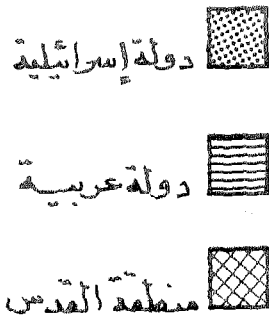 دولة إسرائيلية
دولة عربية
منطقة القدس